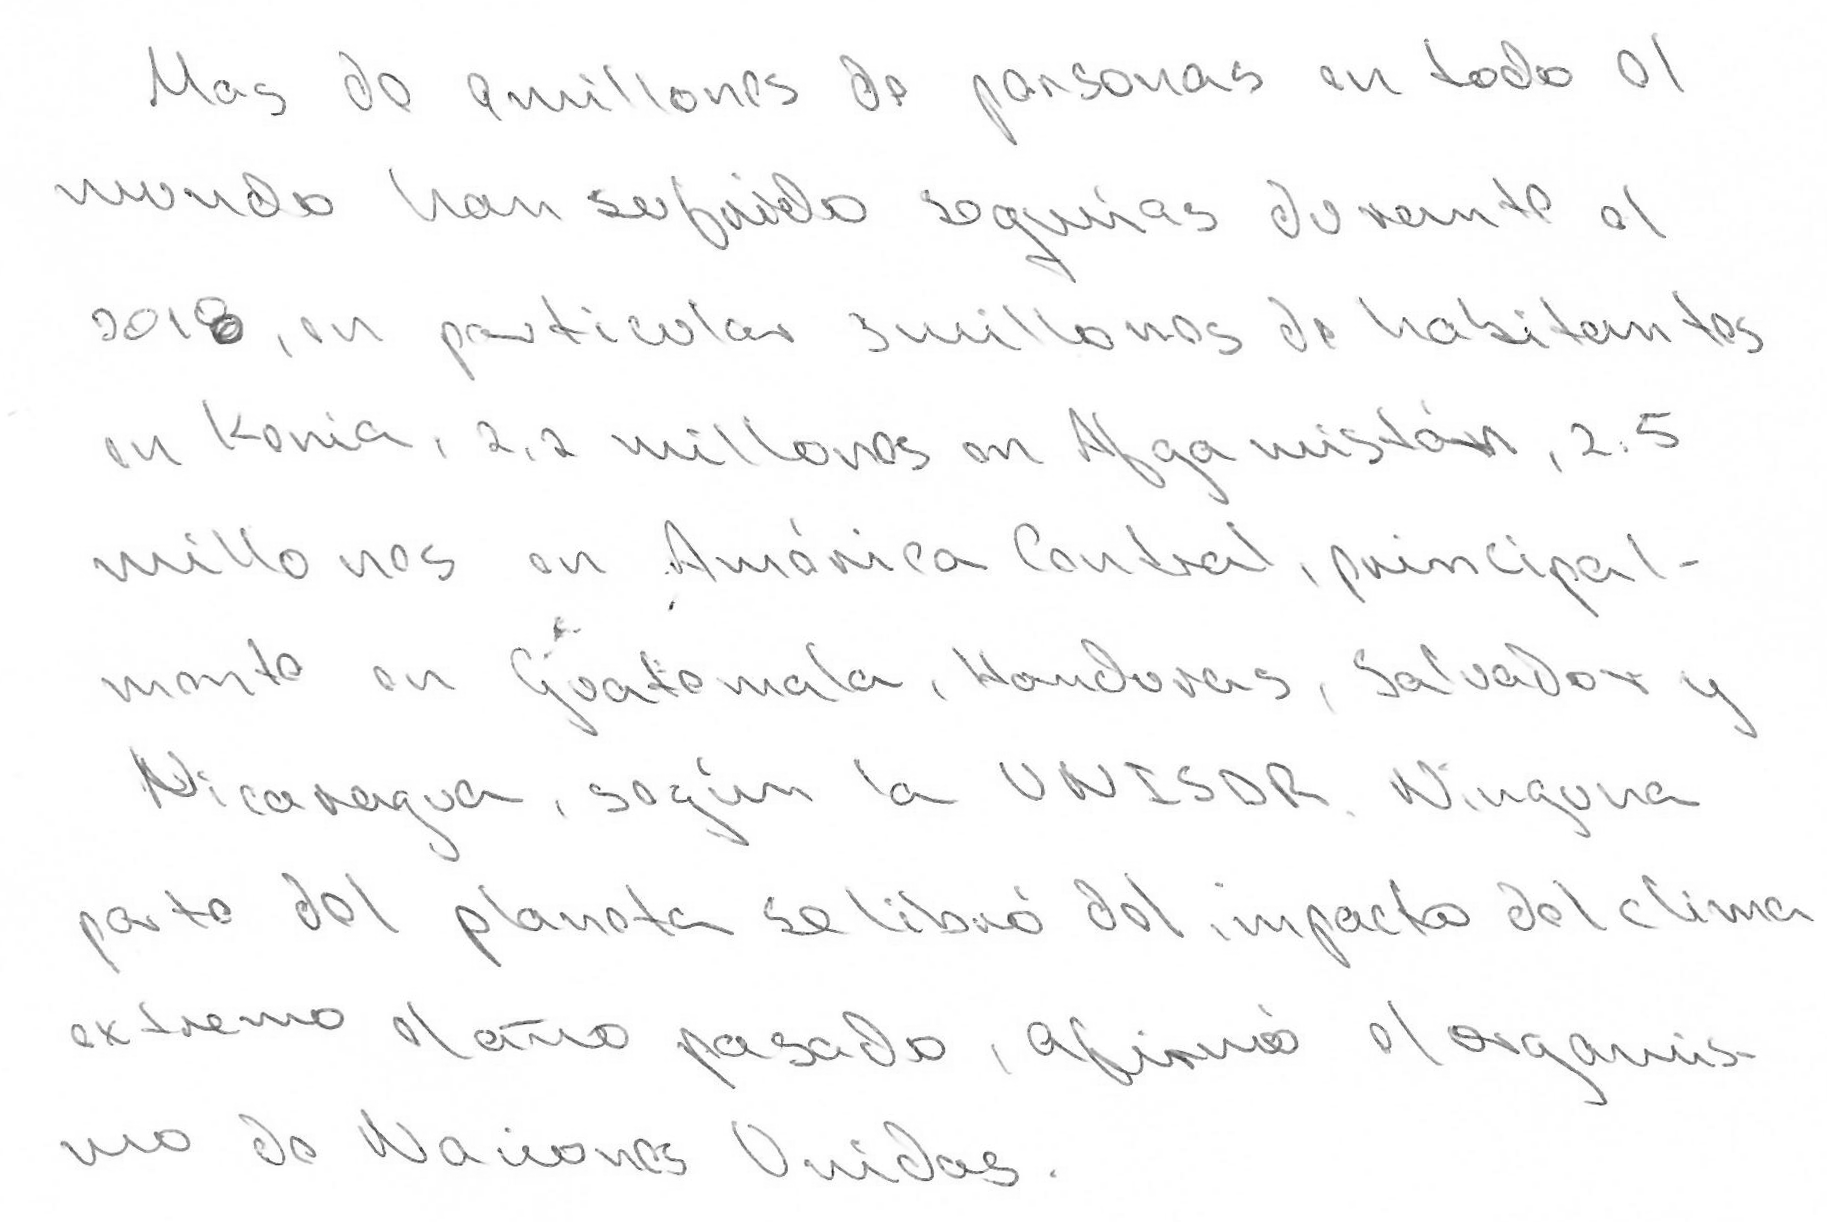 Mas de 9 millones de personas en todo el
mundo han sufrido sequías durante el
2018, en particular 3 millones de habitantes
en Kenia, 2,2 millones en Afganistán, 2.5
millones en América Central, principal-
mente en Guatemala, Honduras, Salvador y
Nicaragua, según la UNISDR. Ninguna
parte del planeta se libró del impacto del clima
extremo el año pasado, afirmó el organis-
mo de Naciones Unidas.